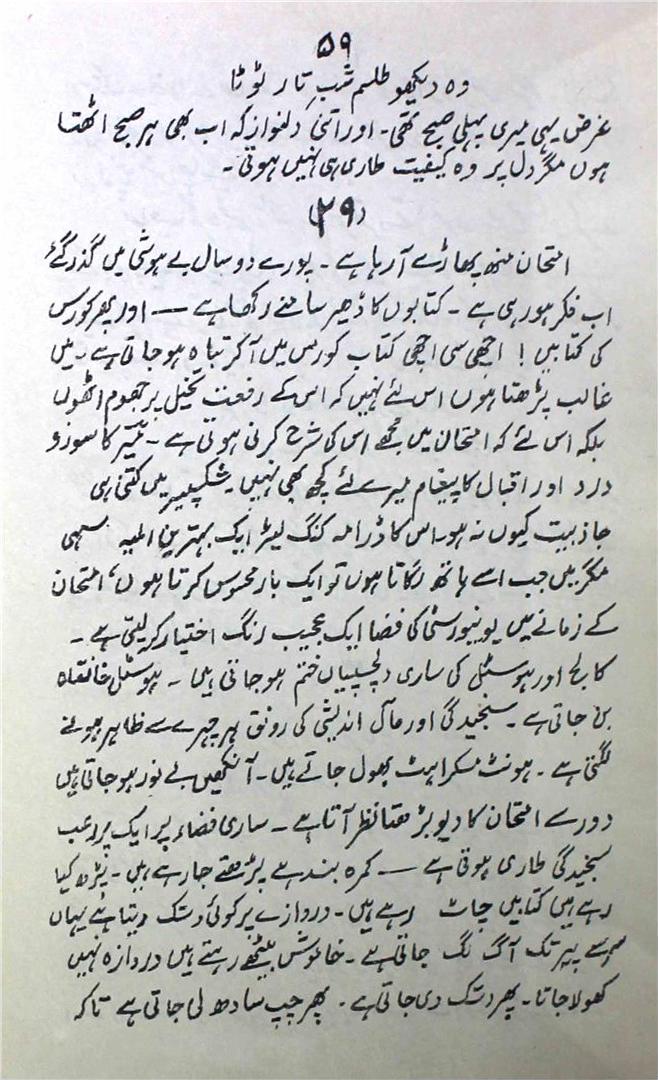 ۵۹
وہ دیکھو طلسم شبِ تار ٹوٹا
غرض یہی میری پہلی صبح تھی۔ اور اتنی دلنواز کہ اب بھی ہر صبح اٹھتا
ہوں مگر دل پر وہ کیفیت طاری ہی نہیں ہوتی۔
(۲۹)
امتحان منھ پھاڑے آ رہا ہے۔ پورے دو سال بے ہوشی میں گذر گئے
اب فکر ہو رہی ہے۔ کتابوں کا ڈھیر سامنے رکھا ہے — اور پھر کورس
کی کتابیں! اچھی سی اچھی کتاب کورس میں آ کر تباہ ہو جاتی ہے۔ میں
غالب پڑھتا ہوں اس لئے نہیں کہ اس کے رفعت تخیل پر جھوم اٹھوں
بلکہ اس لئے کہ امتحان میں مجھے اس کی شرح کرنی ہوتی ہے۔ میر کا سوز و
درد اور اقبال کا پیغام میرے لئے کچھ بھی نہیں۔ شکسپیر میں کتنی ہی
جاذبیت کیوں نہ ہو۔ اس کا ڈرامہ کنگ لیئر ایک بہترین المیہ سہی
مگر میں جب اسے ہاتھ لگاتا ہوں تو ایک بار محسوس کرتا ہوں، امتحان
کے زمانے میں یونیورسٹی کا فضا ایک عجیب رنگ اختیار کر لیتی ہے۔
کالج اور ہوسٹل کی ساری دلچسپیاں ختم ہو جاتی ہیں۔ ہوسٹل خانقاہ
بن جاتی ہے۔ سنجیدگی اور مآل اندیشی کی رونق ہر چہرے سے ظاہر ہونے
لگتی ہے۔ ہونٹ مسکراہٹ بھول جاتے ہیں۔ آنکھیں بے نور ہو جاتی ہیں
دور سے امتحان کا دیو بڑھتا نظر آتا ہے۔ ساری فضاء پر ایک پر رعب
سنجیدگی طاری ہوتی ہے — کمرہ بند ہے پڑھتے جا رہے ہیں۔ پڑھ کیا
رہے ہیں کتابیں چاٹ رہے ہیں۔ دروازے پر کوئی دستک دیتا ہے یہاں
سر سے پیر تک آگ لگ جاتی ہے۔ خاموش بیٹھے رہتے ہیں دروازہ نہیں
کھولا جاتا۔ پھر دستک دی جاتی ہے۔ پھر چپ سادھ لی جاتی ہے تاکہ